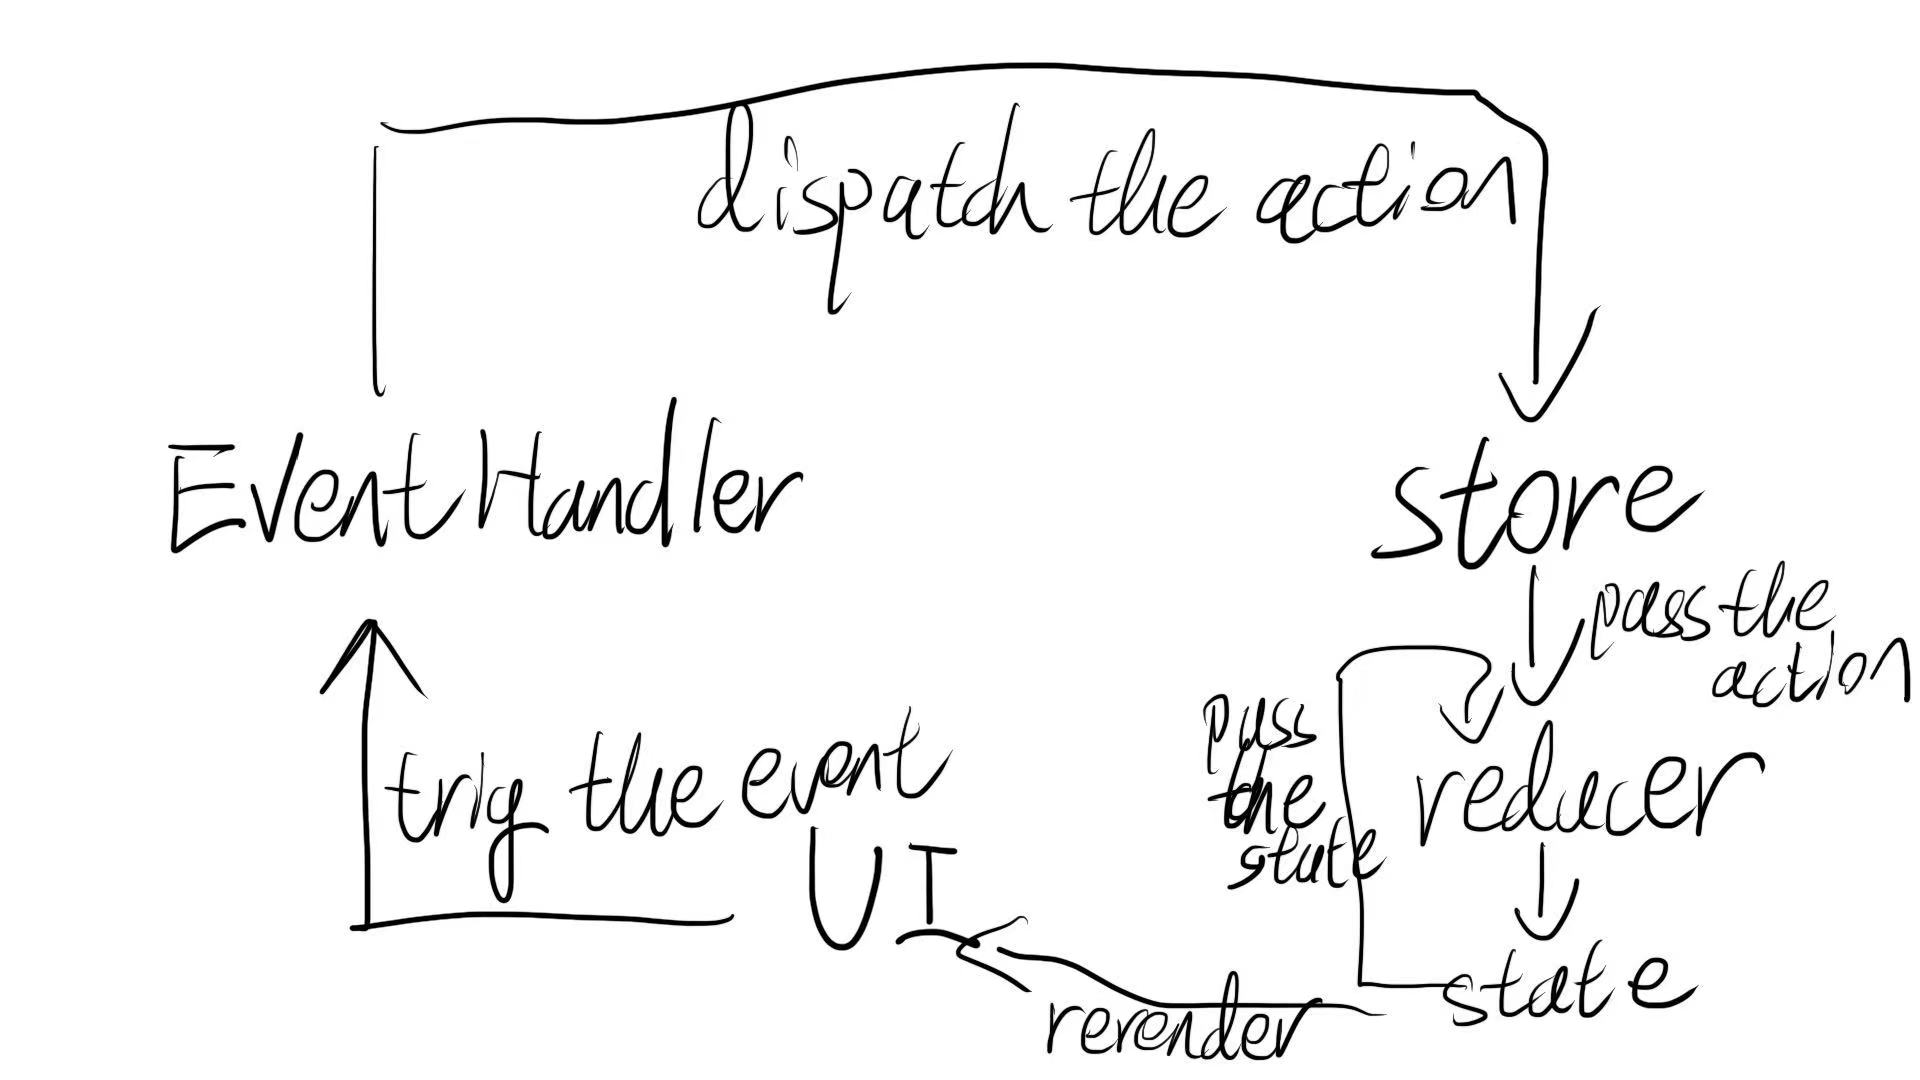 dispatch the action
EventHandler
store
pass the
action
pass
the
state
reducer
trig the event
UI
state
rerender